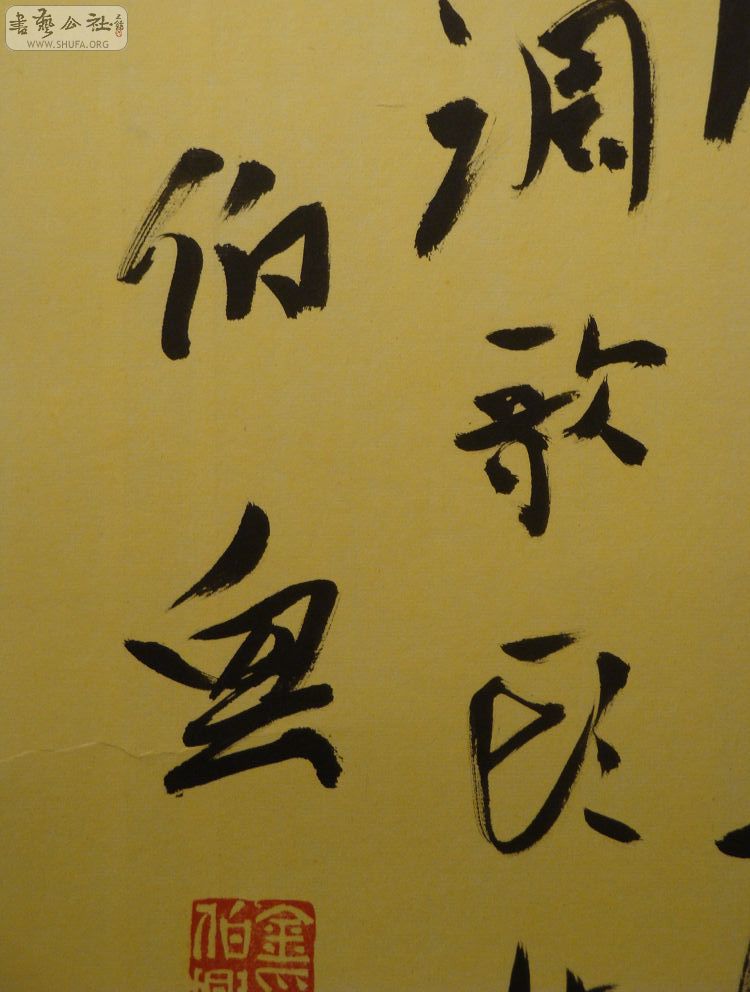 書藝公社
WWW.SHUFA.ORG
調歌頭
伯興
金
伯